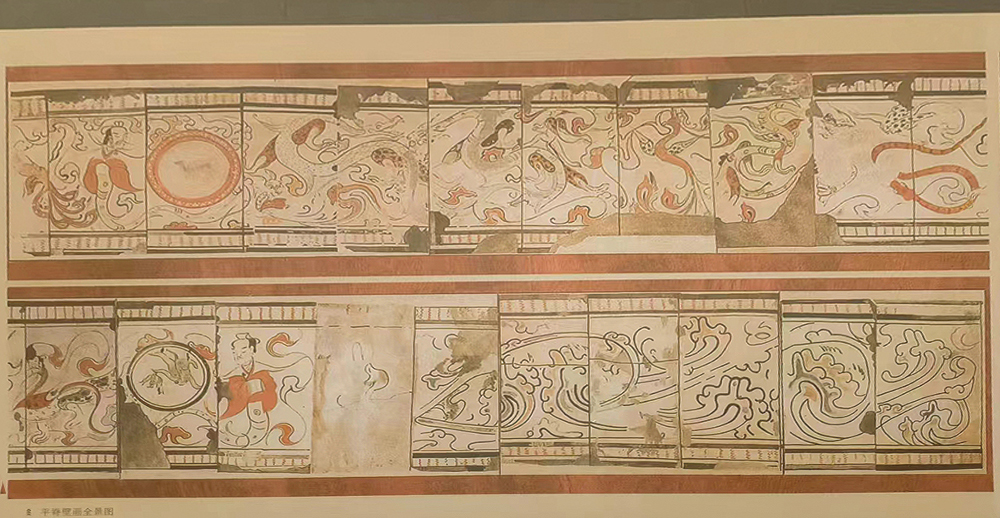 平脊壁画全景图